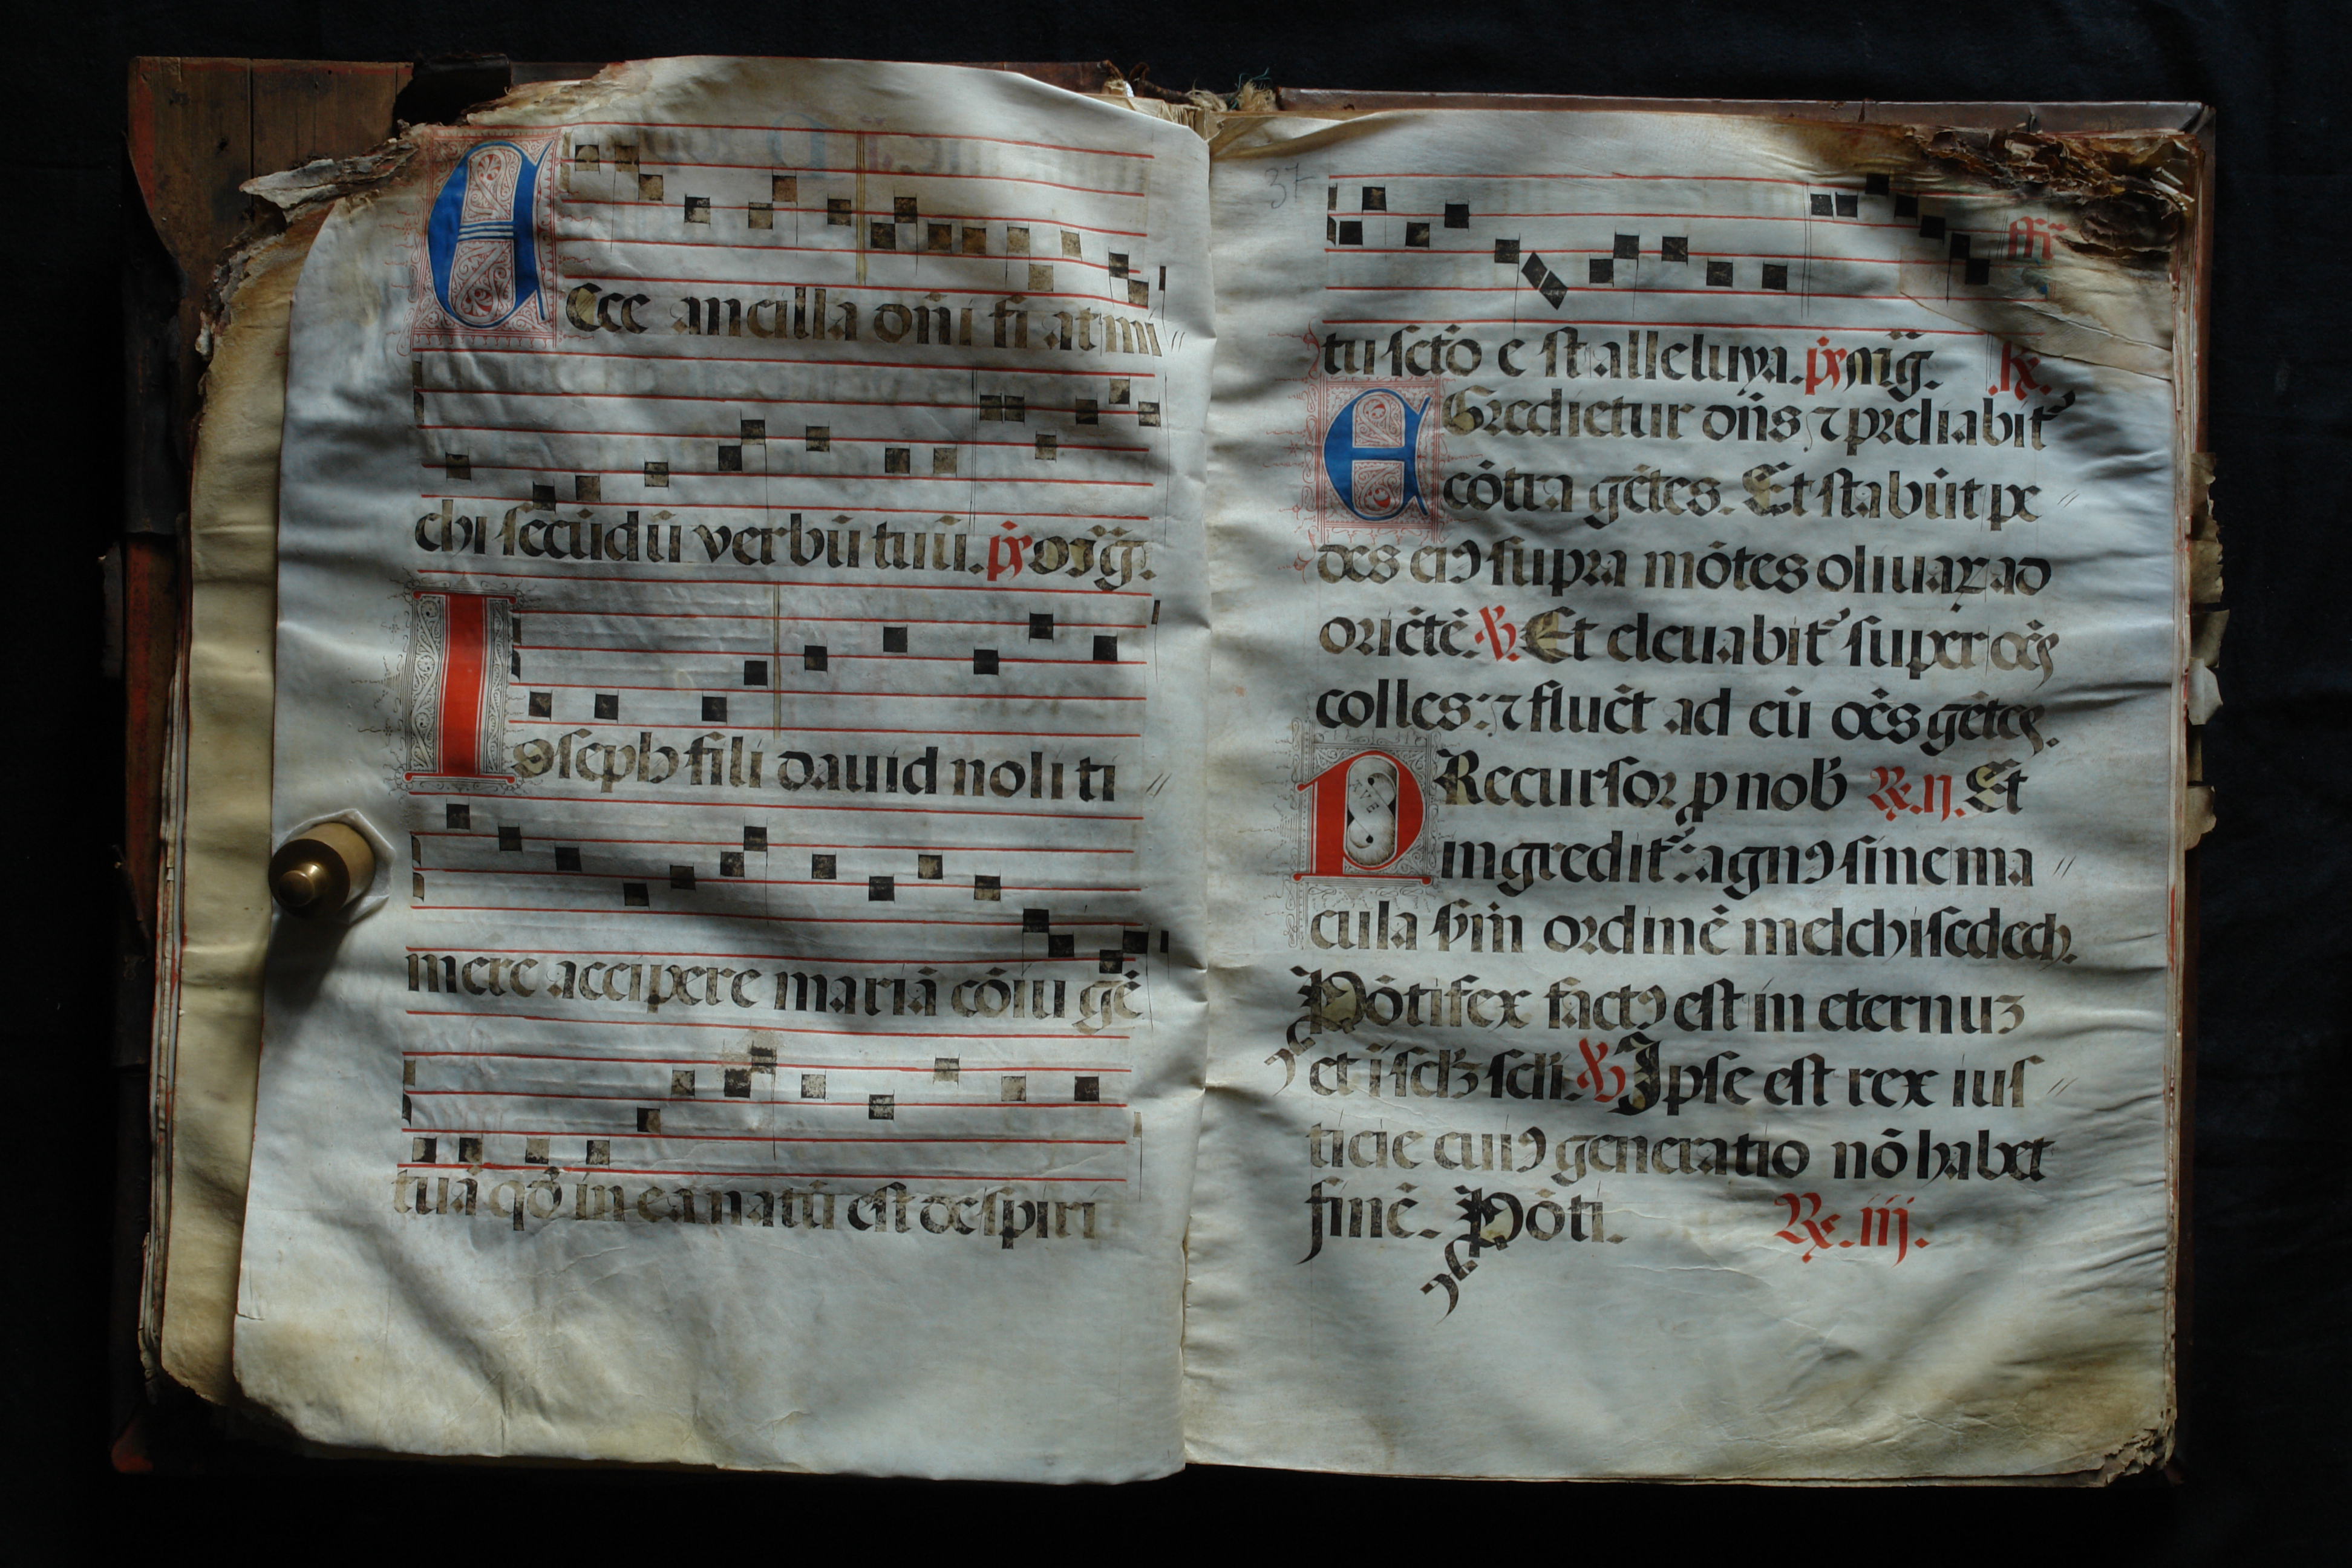 Ecce ancilla dn̄i fi at mi
chi secūdū verbū tuū.
Ioseph fili dauid noli ti
mere accipere mariā cōiu gē
tuā qd̄ in ea natū est de spiri
37
tu sct̄o e st alleluya.
Egredietur dn̄s ⁊ preliabit᷑
cōtra gētes. Et stabūt pe
des eiꝰ supra mōtes oliuaꝝ ad
oriētē. ℣. Et eleuabit᷑ super oēs
colles: ⁊ fluēt ad eū oēs gētes.
Precursor ꝓ nob̄ ℞. ij. Et
ingredit᷑: agnꝰ sine ma
cula scd̄m ordinē melchisedech.
Pōtifex factꝰ est in eternuꝫ
et ī scl̄ꝫ scl̄i. ℣ Ipse est rex ius
ticie cuiꝰ generatio nō habet
finē. Pōti. ℞. iij.